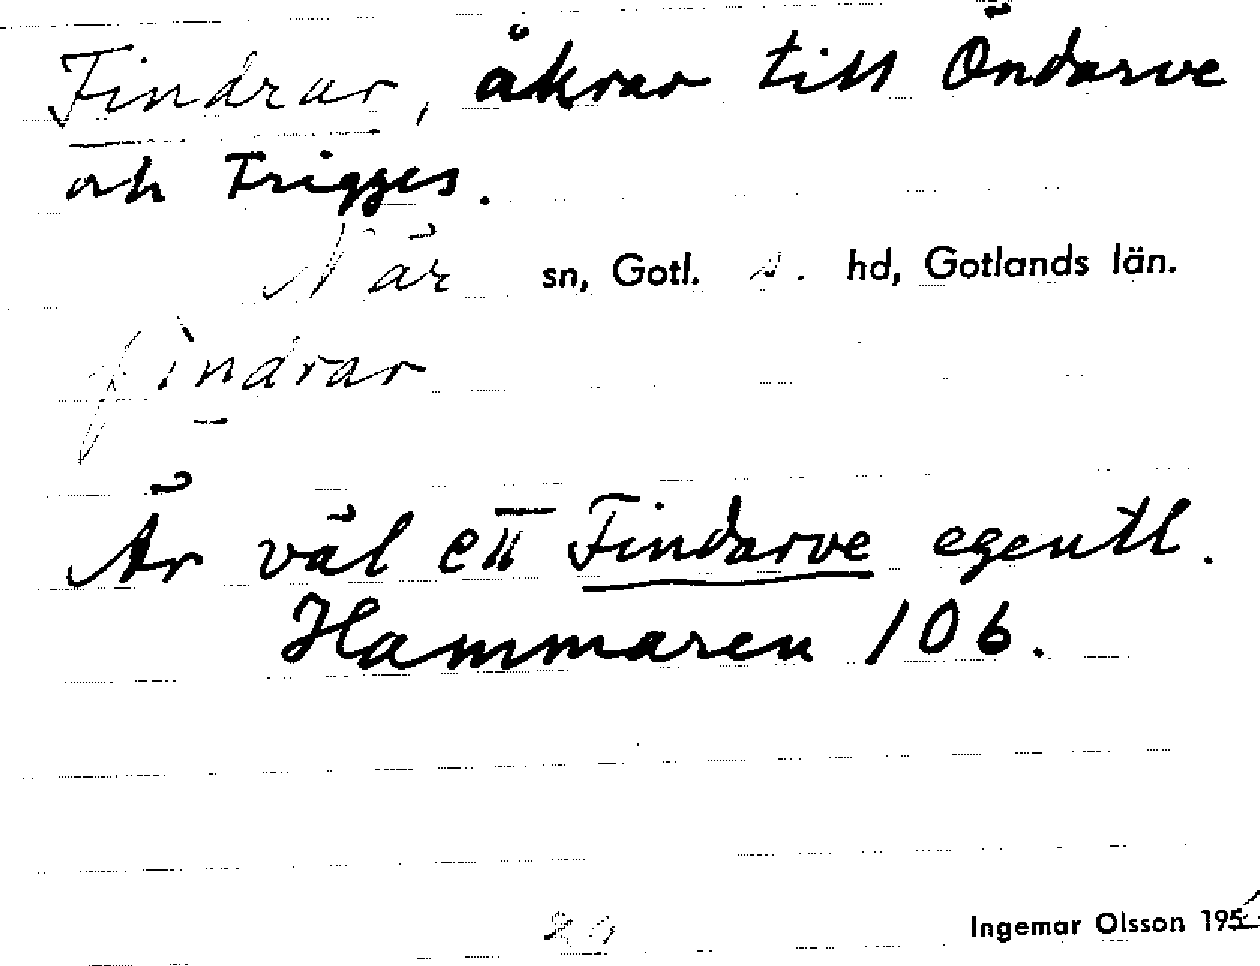 Findrar, åkrar till Öndarve
och Trigges.
När sn, Gotl. s. hd, Gotlands län.
findrar
Är väl ett Findarve egentl.
Hammaren 106.
Ingemar Olsson